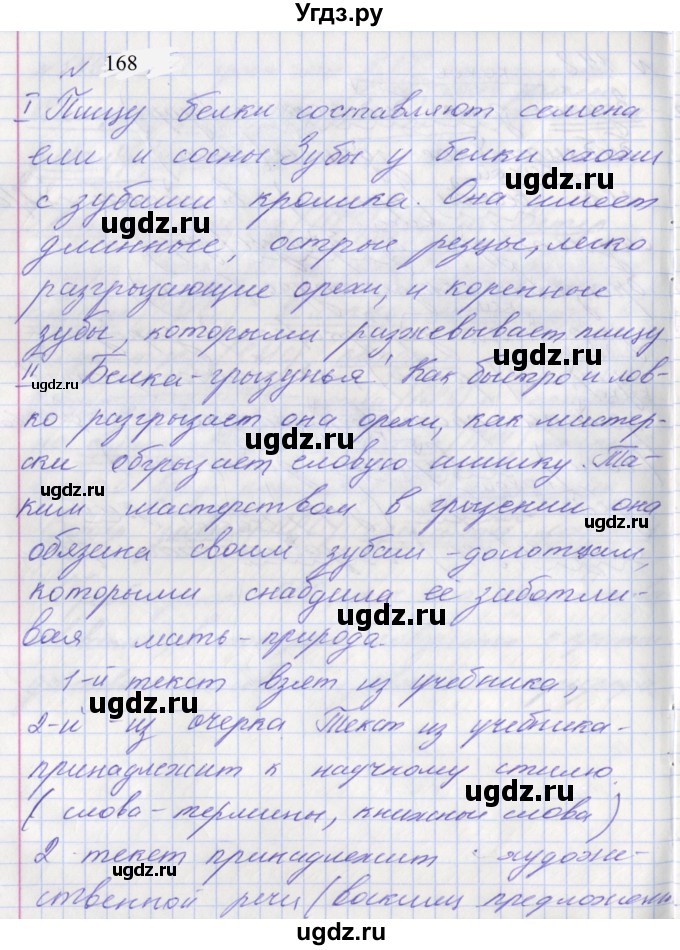 Угдз.ру
№ 168
I Пищу белки составляют семена
ели и сосны. Зубы у белки схожи
с зубами кролика. Она имеет
длинные, острые резцы, легко
разгрызающие орехи, и коренные
зубы, которыми разжевывает пищу
II Белка-грызунья. Как быстро и лов-
ко разгрызает она орехи, как мастер-
ски обгрызает еловую шишку. Та-
ким мастерством в грызении она
обязана своим зубам-долотцам,
которыми снабдила ее заботли-
вая мать-природа.
1-й текст взят из учебника,
2-й - из очерка. Текст из учебника-
принадлежит к научному стилю.
(слова-термины, книжные слова)
2 текст принадлежит художе-
ственной речи (восклиц предложени
ugdz.ru
ugdz.ru
ugdz.ru
ugdz.ru
ugdz.ru
ugdz.ru
ugdz.ru
ugdz.ru
ugdz.ru
ugdz.ru
ugdz.ru
ugdz.ru
ugdz.ru